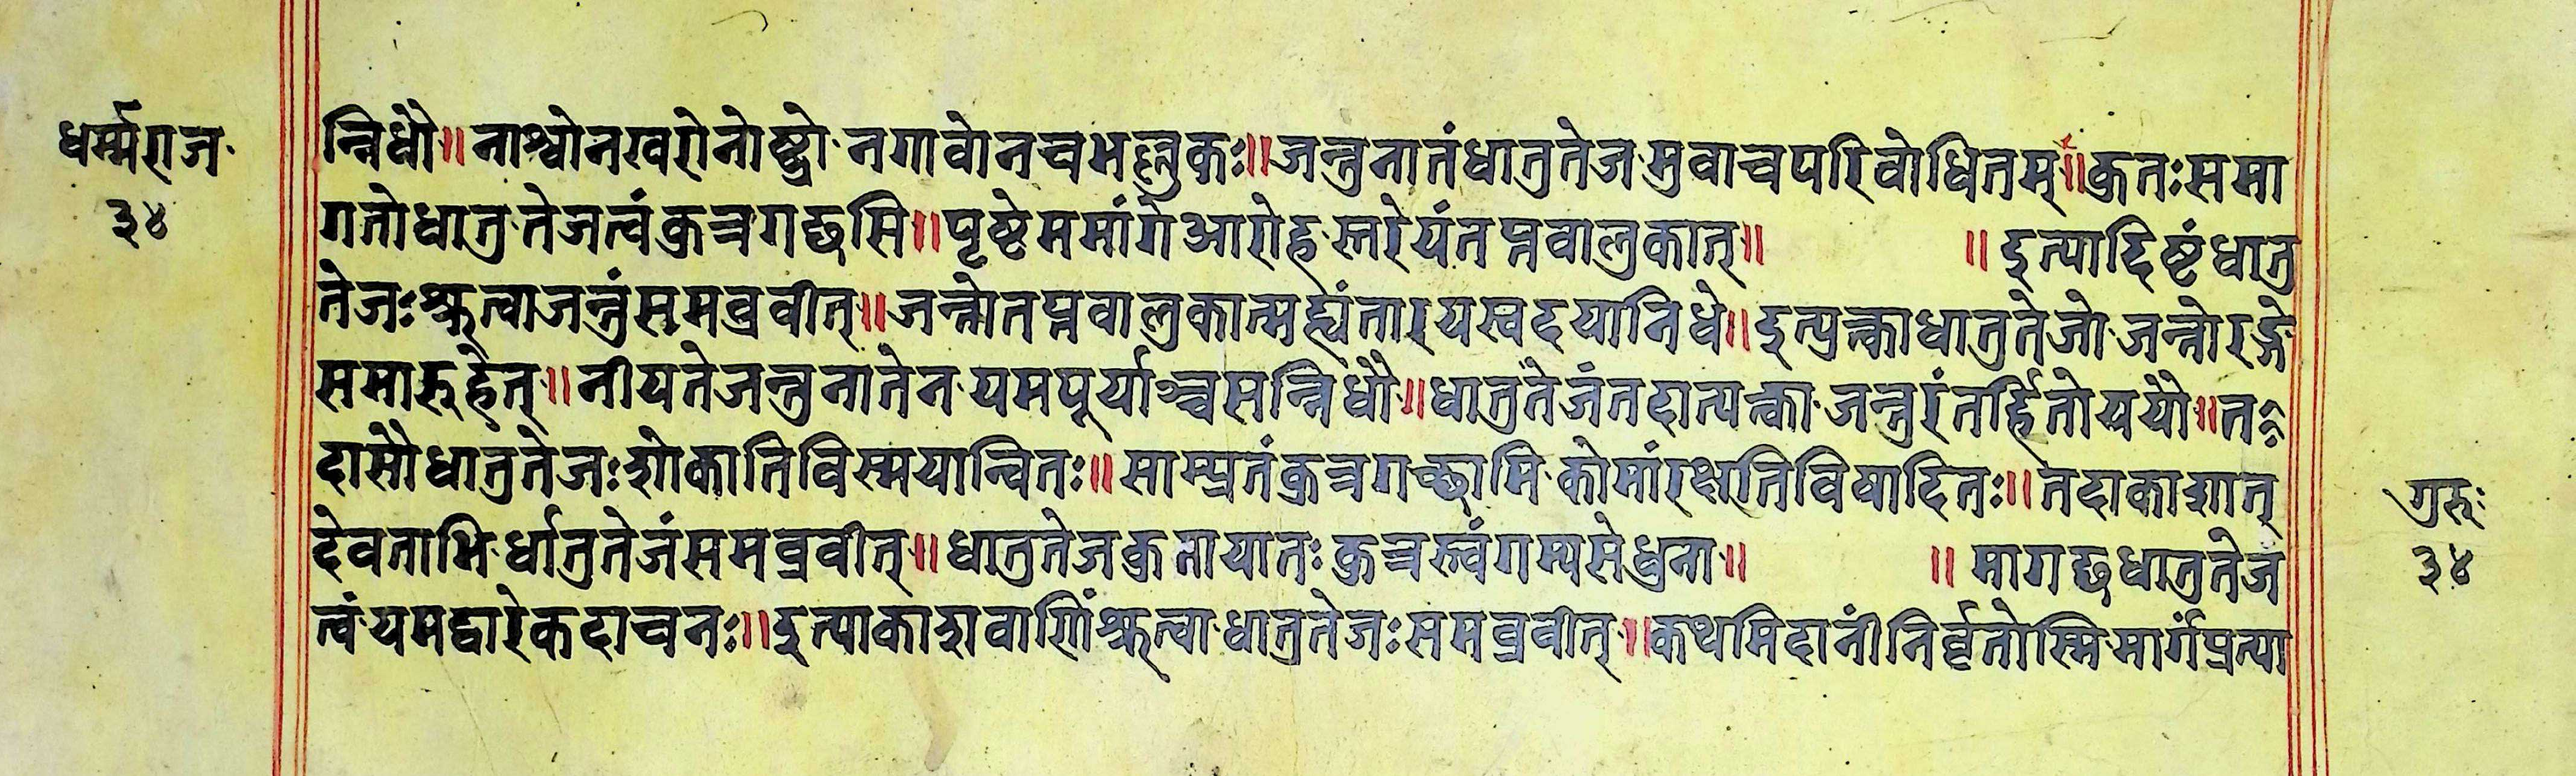 धर्म्मराज
३४
न्निधौ॥ नाश्वोनखरोनोष्ट्रो नगावोनचभल्लुकः॥जन्तुनातंधातुतेजमुवाचपरिबोधितम्॥कुतःसमा
गतोधातुतेजत्वंकुत्रगछसि॥पृष्टेममांगेआरोहस्तरेयंतप्तवालुकात्॥ ॥इत्यादिष्टंधातु
तेजःश्रुत्वाजन्तुंसमब्रवीत्॥जन्तोतप्तवालुकात्मह्यंतारयस्वदयानिधे॥इत्युक्त्वाधातुतेजोजन्तोरङ्गे
समारुहेत्॥नीयतेजन्तुनातेनयमपूर्याश्चसन्निधौ॥धातुतेजंतदात्यक्त्वाजन्तुरंतर्हितोययौ॥त
दासौधातुतेजःशोकातिविस्मयान्वितः॥साम्प्रतंकुत्रगच्छामिकोमांरक्षतिविषादितः॥तदाकाशात्
देवताभिर्धातुतेजंसमब्रवीत्॥धातुतेजकुतायातःकुत्रत्वंगम्यसेधुना॥ ॥मागछधातुतेज
त्वंयमद्वारेकदाचनः॥इत्याकाशवाणिंश्रुत्वाधातुतेजःसमब्रवीत्॥कथमिदानींनिर्वृतोस्मिमार्गंप्रत्या
गुरुः
३४